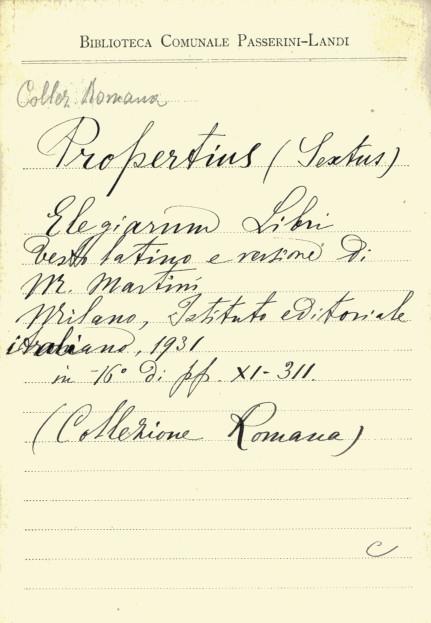 BIBLIOTECA COMUNALE PASSERINI-LANDI
Collez. Romana
Propertius (Sextus)
Elegiarum Libri
testo latino e versione di
M. Martini
Milano, Istituto editoriale
italiano, 1931
in -16° di pp. XI-311.
(Collezione Romana)
C